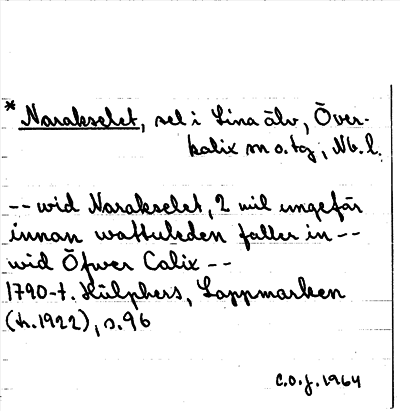 * Narakselet, sel i Lina älv, Över-
kalix sn o. tg, Nb. l.
-- wid Narakselet, 2 mil ungefär
innan wattuleden faller in --
wid Öfwer Calix --
1790-t. Hülphers, Lappmarken
(tr. 1922), s. 96
C.O.J. 1964